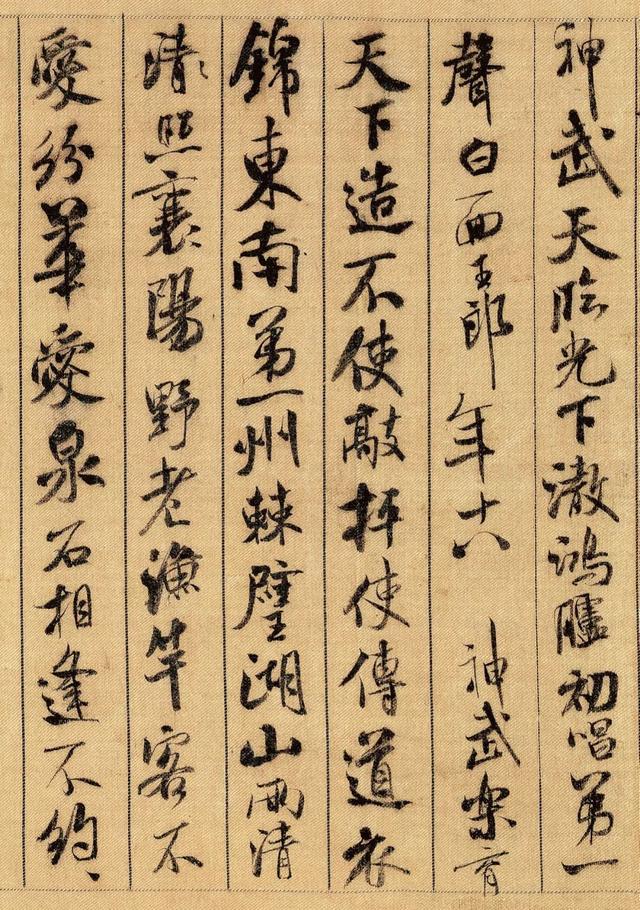 神武天臨光下澈鴻臚初唱第一
聲白面玉郎年十八神武樂育
天下造不使敲枰使傳道衣
錦東南第一州棘璧湖山兩清
清〻照襄陽野老漁竿客不
愛紛華愛泉石相逢不約、